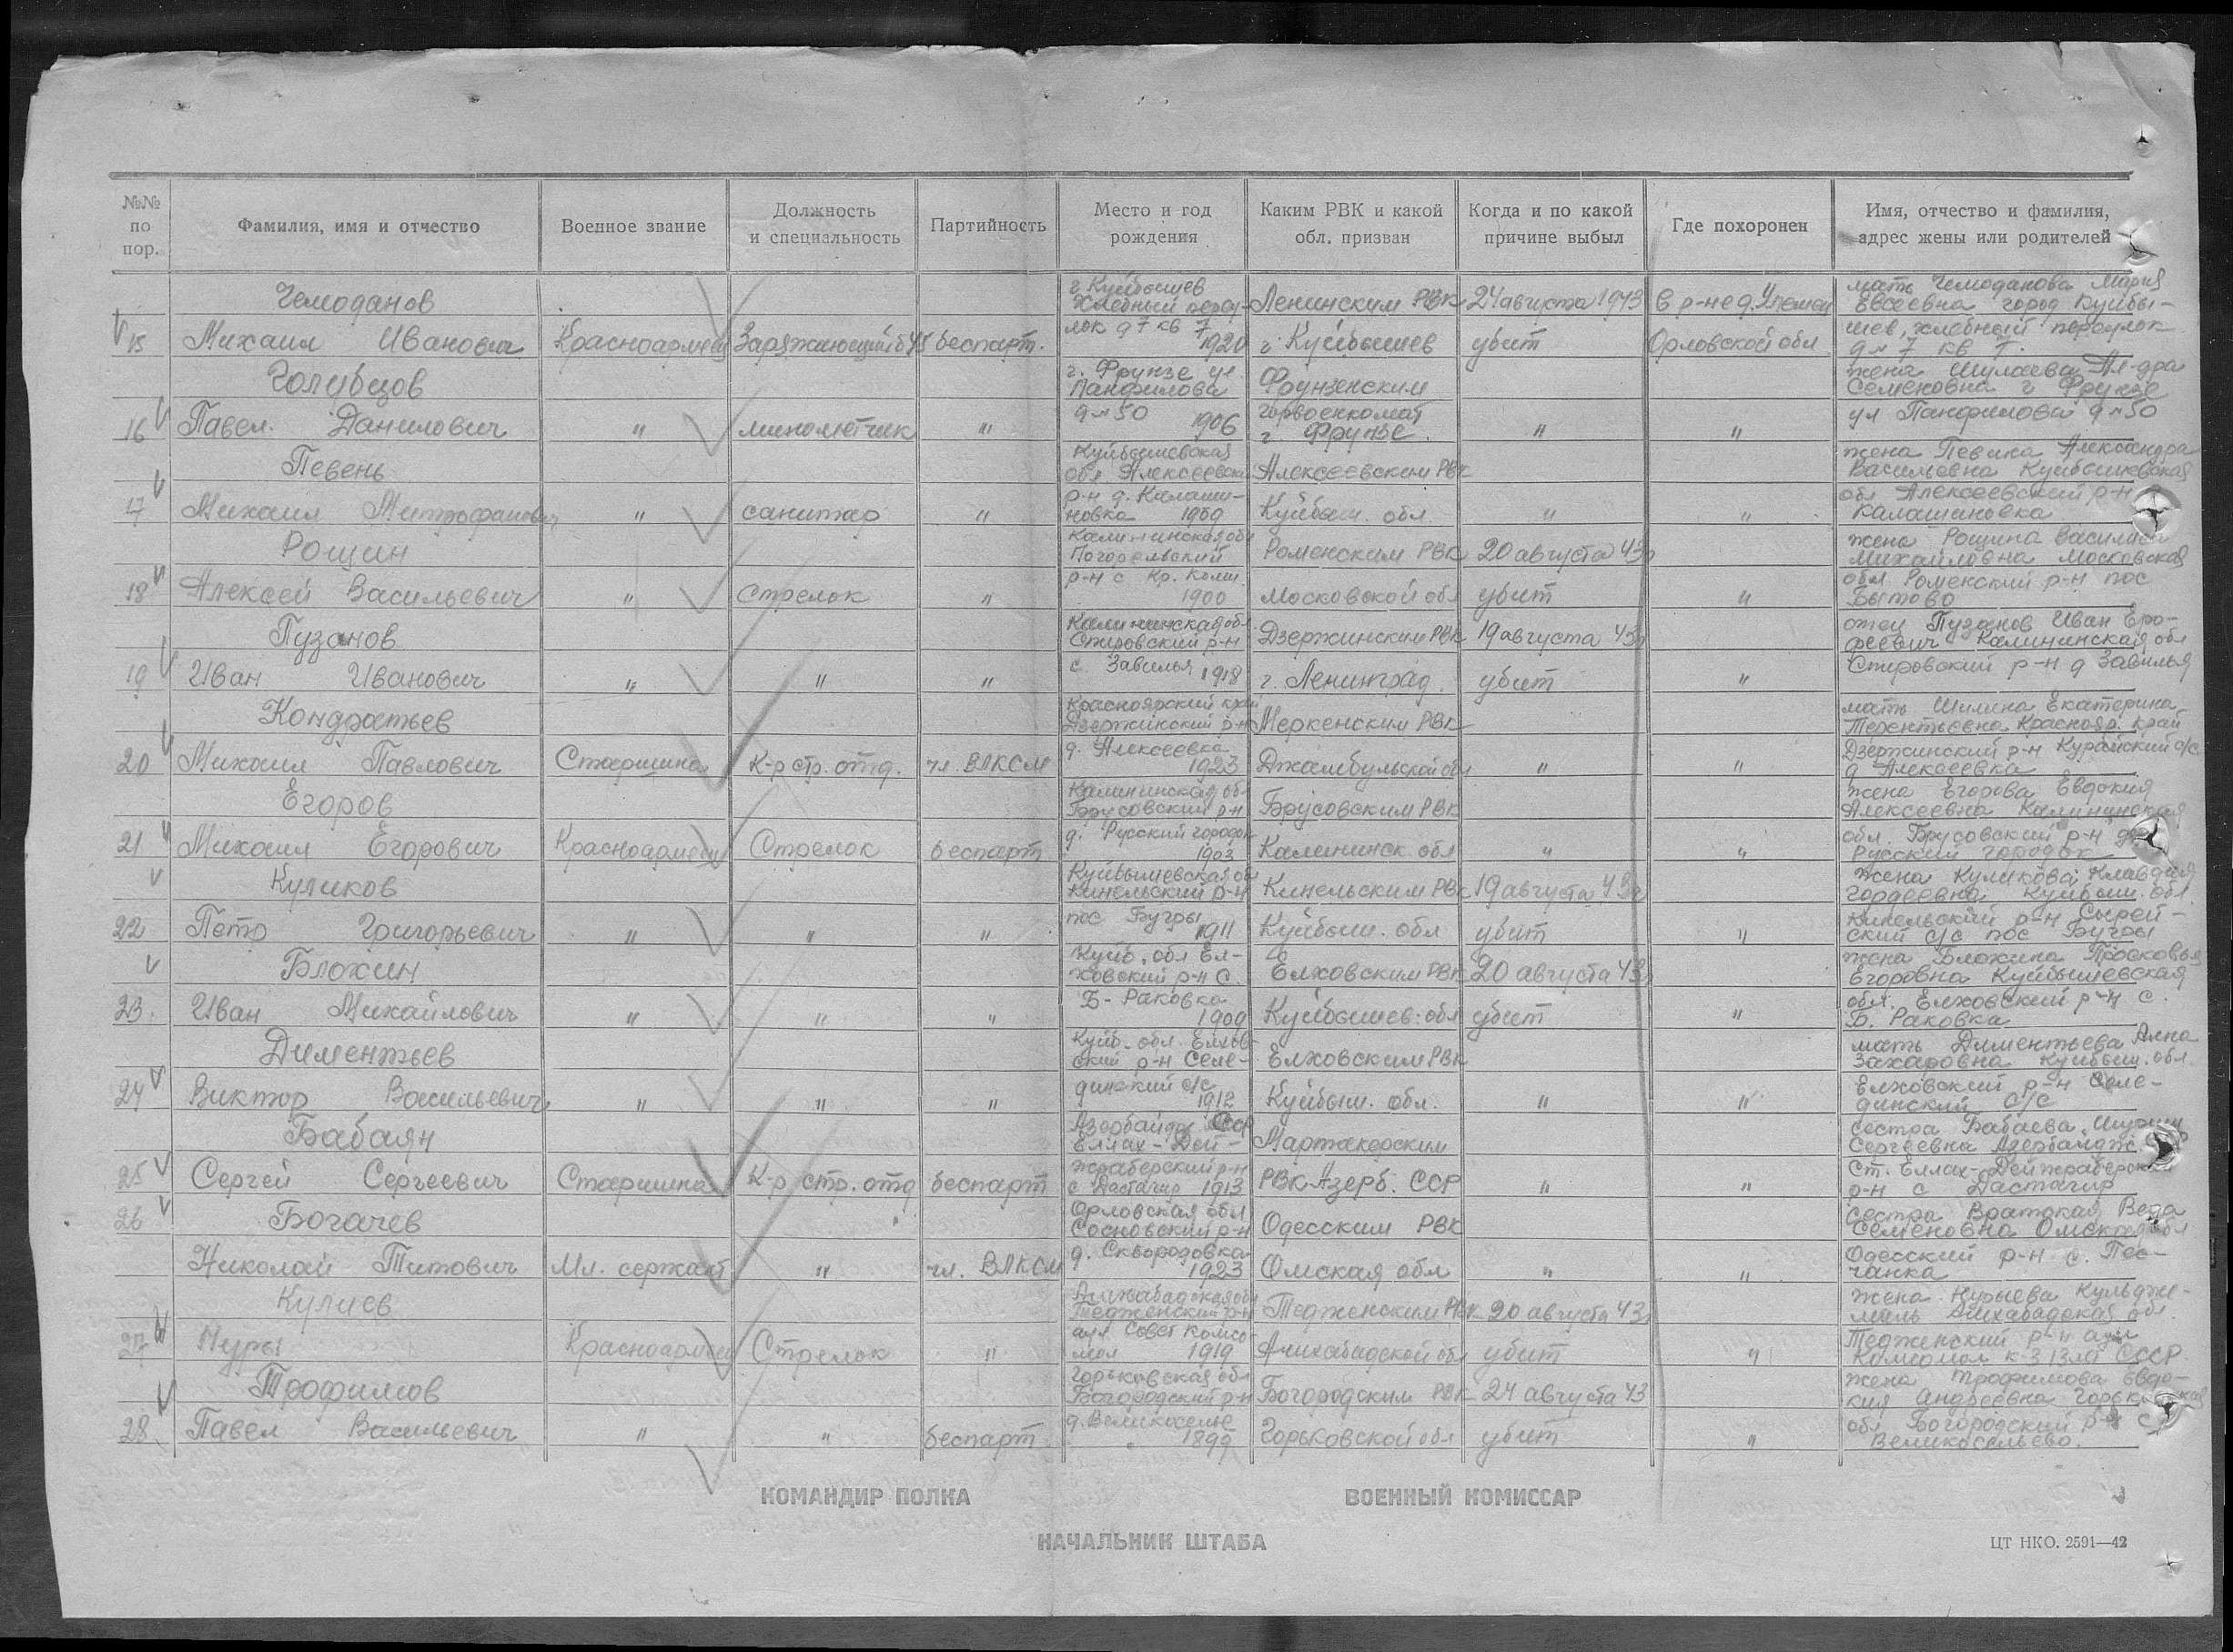 №№ по пор.
Фамилия, имя и отчество
Военное звание
Должность и специальность
Партийность
Место и год рождения
Каким РВК и какой обл. призван
Когда и по какой причине выбыл
Где похоронен
Имя, отчество и фамилия, адрес жены или родителей
15 Чемоданов Михаил Иванович
Красноармеец
Заряжающий б 45
беспарт.
г. Куйбышев
Хлебный переу-
лок д 7 кв 7
1920
Ленинским РВК
г. Куйбышев
24 августа 1943
убит
в р-не д.
Орловской обл
мать Чемоданова Мария
Евсеевна город Куйбы-
шев, хлебный переулок
д № 7 кв 7.
16 Голубцов Павел Данилович
"
минометчик
"
г. Фрунзе ул.
Панфилова
д № 50 1906
Фрунзенским
горвоенкомат
г. Фрунзе.
"
"
жена Ал-дра
Семеновна г Фрунзе
ул Панфилова д № 50
17 Певень Михаил Митрофанович
"
санитар
"
Куйбышевская
обл. Алексеевский
р-н д. Калаши-
новка 1909
Алексеевским РВК
Куйбыш. обл
"
"
жена Певина Александра
Васильевна Куйбышевская
обл Алексеевский р-н
Калашиновка
18 Рощин Алексей Васильевич
"
Стрелок
"
Калининская обл
Погорельский
р-н с Кр. Холм.
1900
Раменским РВК
Московской обл
20 августа 43г
убит
"
жена Рощина Василиса
Михайловна Московская
обл Раменский р-н пос
Быково
19 Пузанов Иван Иванович
"
"
"
Калининская обл.
Спировский р-н
с. Завилья 1918
Дзержинским РВК
г. Ленинград.
19 августа 43г
убит
"
отец Пузанов Иван Еро-
феевич Калининская обл
Спировский р-н д Завилья
20 Кондратьев Михаил Павлович
Старшина
К-р стр. отд.
чл. ВЛКСМ
Красноярский край
Дзержинский р-н
д. Алексеевка
1923
Меркенским РВК
Джамбульской обл
"
"
мать Шилина Екатерина
Терентьевна Краснояр. край
Дзержинский р-н Курайский с/с
д Алексеевка
21 Егоров Михаил Егорович
Красноармеец
Стрелок
беспарт
Калининская обл
Брусовский р-н
д. Русский городок
1903
Брусовским РВК
Калининск. обл
"
"
жена Егорова Евдокия
Алексеевна Калининская
обл. Брусовский р-н д.
Русский городок
22 Куликов Петр Григорьевич
"
"
"
Куйбышевская обл
Кинельский р-н
пос Бугры
1911
Кинельским РВК
Куйбыш. обл
19 августа 43г
убит
"
жена Куликова Клавдия
Гордеевна Куйбыш. обл.
Кинельский р-н Сырей-
ский с/с пос Бугры
23. Блохин Иван Михайлович
"
"
"
Куйб. обл Ел-
ховский р-н с.
Б-Раковка
1909
Елховским РВК
Куйбышев. обл
20 августа 43г
убит
"
жена Блохина Просковья
Егоровна Куйбышевская
обл. Елховский р-н с.
Б. Раковка
24 Диментьев Виктор Васильевич
"
"
"
Куйб. обл. Елхов-
ский р-н Селе-
динский с/с
1912
Елховским РВК
Куйбыш. обл.
"
"
мать Диментьева Анна
Захаровна Куйбыш. обл.
Елховский р-н Селе-
динский с/с
25 Бабаян Сергей Сергеевич
Старшина
К-р стр. отд
беспарт
Азербайдж ССР
Евлах-Дей-
жраберский р-н
с Дастагир 1913
Мартакерским
РВК Азерб. ССР
"
"
сестра Бабаева
Сергеевна Азербайдж.
ст. Евлах-Дейжраберский
р-н с Дастагир
26 Богачев Николай Титович
Мл. сержант
"
чл. ВЛКСМ
Орловская обл
Сосновский р-н
д. Сквородовка
1923
Одесским РВК
Омская обл
"
"
сестра Братская Веда
Семеновна Омская обл
Одесский р-н с. Пес-
чанка
27 Кулиев Нуры
Красноармеец
Стрелок
"
Ашхабадская обл
Тедженский р-н
аул Совет комсо-
мол 1919
Тедженским РВК
Ашхабадской обл
20 августа 43г
убит
"
жена Курыева Кульдже-
миль Ашхабадская обл.
Тедженский р-н аул
Комсомол к-з СССР
28 Трофимов Павел Васильевич
"
"
беспарт
Горьковская обл
Богородский р-н
д. Великоселье
1899
Богородским РВК
Горьковской обл
24 августа 43
убит
"
жена Трофимова Евдо-
кия Андреевна Горьковская
обл Богородский р-н с
Великосельево.
КОМАНДИР ПОЛКА
ВОЕННЫЙ КОМИССАР
НАЧАЛЬНИК ШТАБА
ЦТ НКО. 2591—42